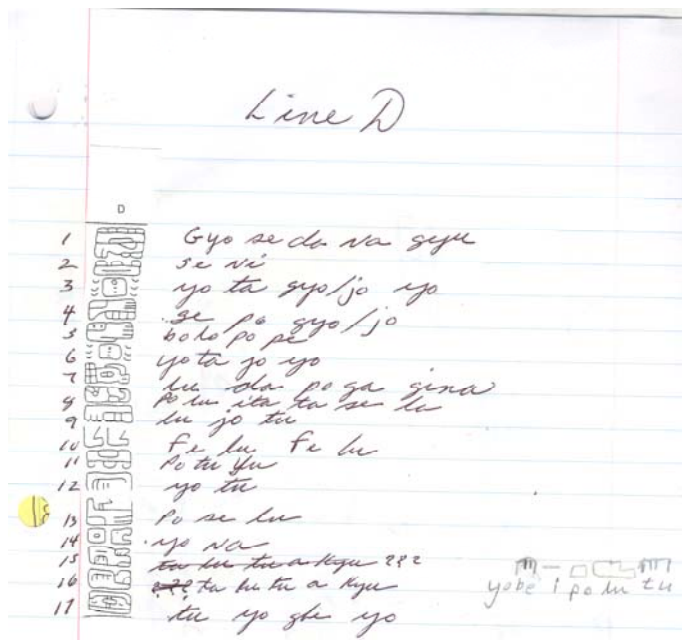 Line D
D
1 Gyo se da va gyu
2 se vi
3 yo ta gyo/jo yo
4 se po gyo/jo
5 bo lo po pe
6 yo ta jo yo
7 lu da po ga gina
8 Po lu ita ta se la
9 lu jo tu
10 Fe lu Fe lu
11 Po tu Yu
12 yo tu
13 Po se lu
14 yo va
15 ta lu tu a Kyu ???
16 ??? ta lu tu a Kyu
yobe i po lu tu
17 tu yo gbe yo